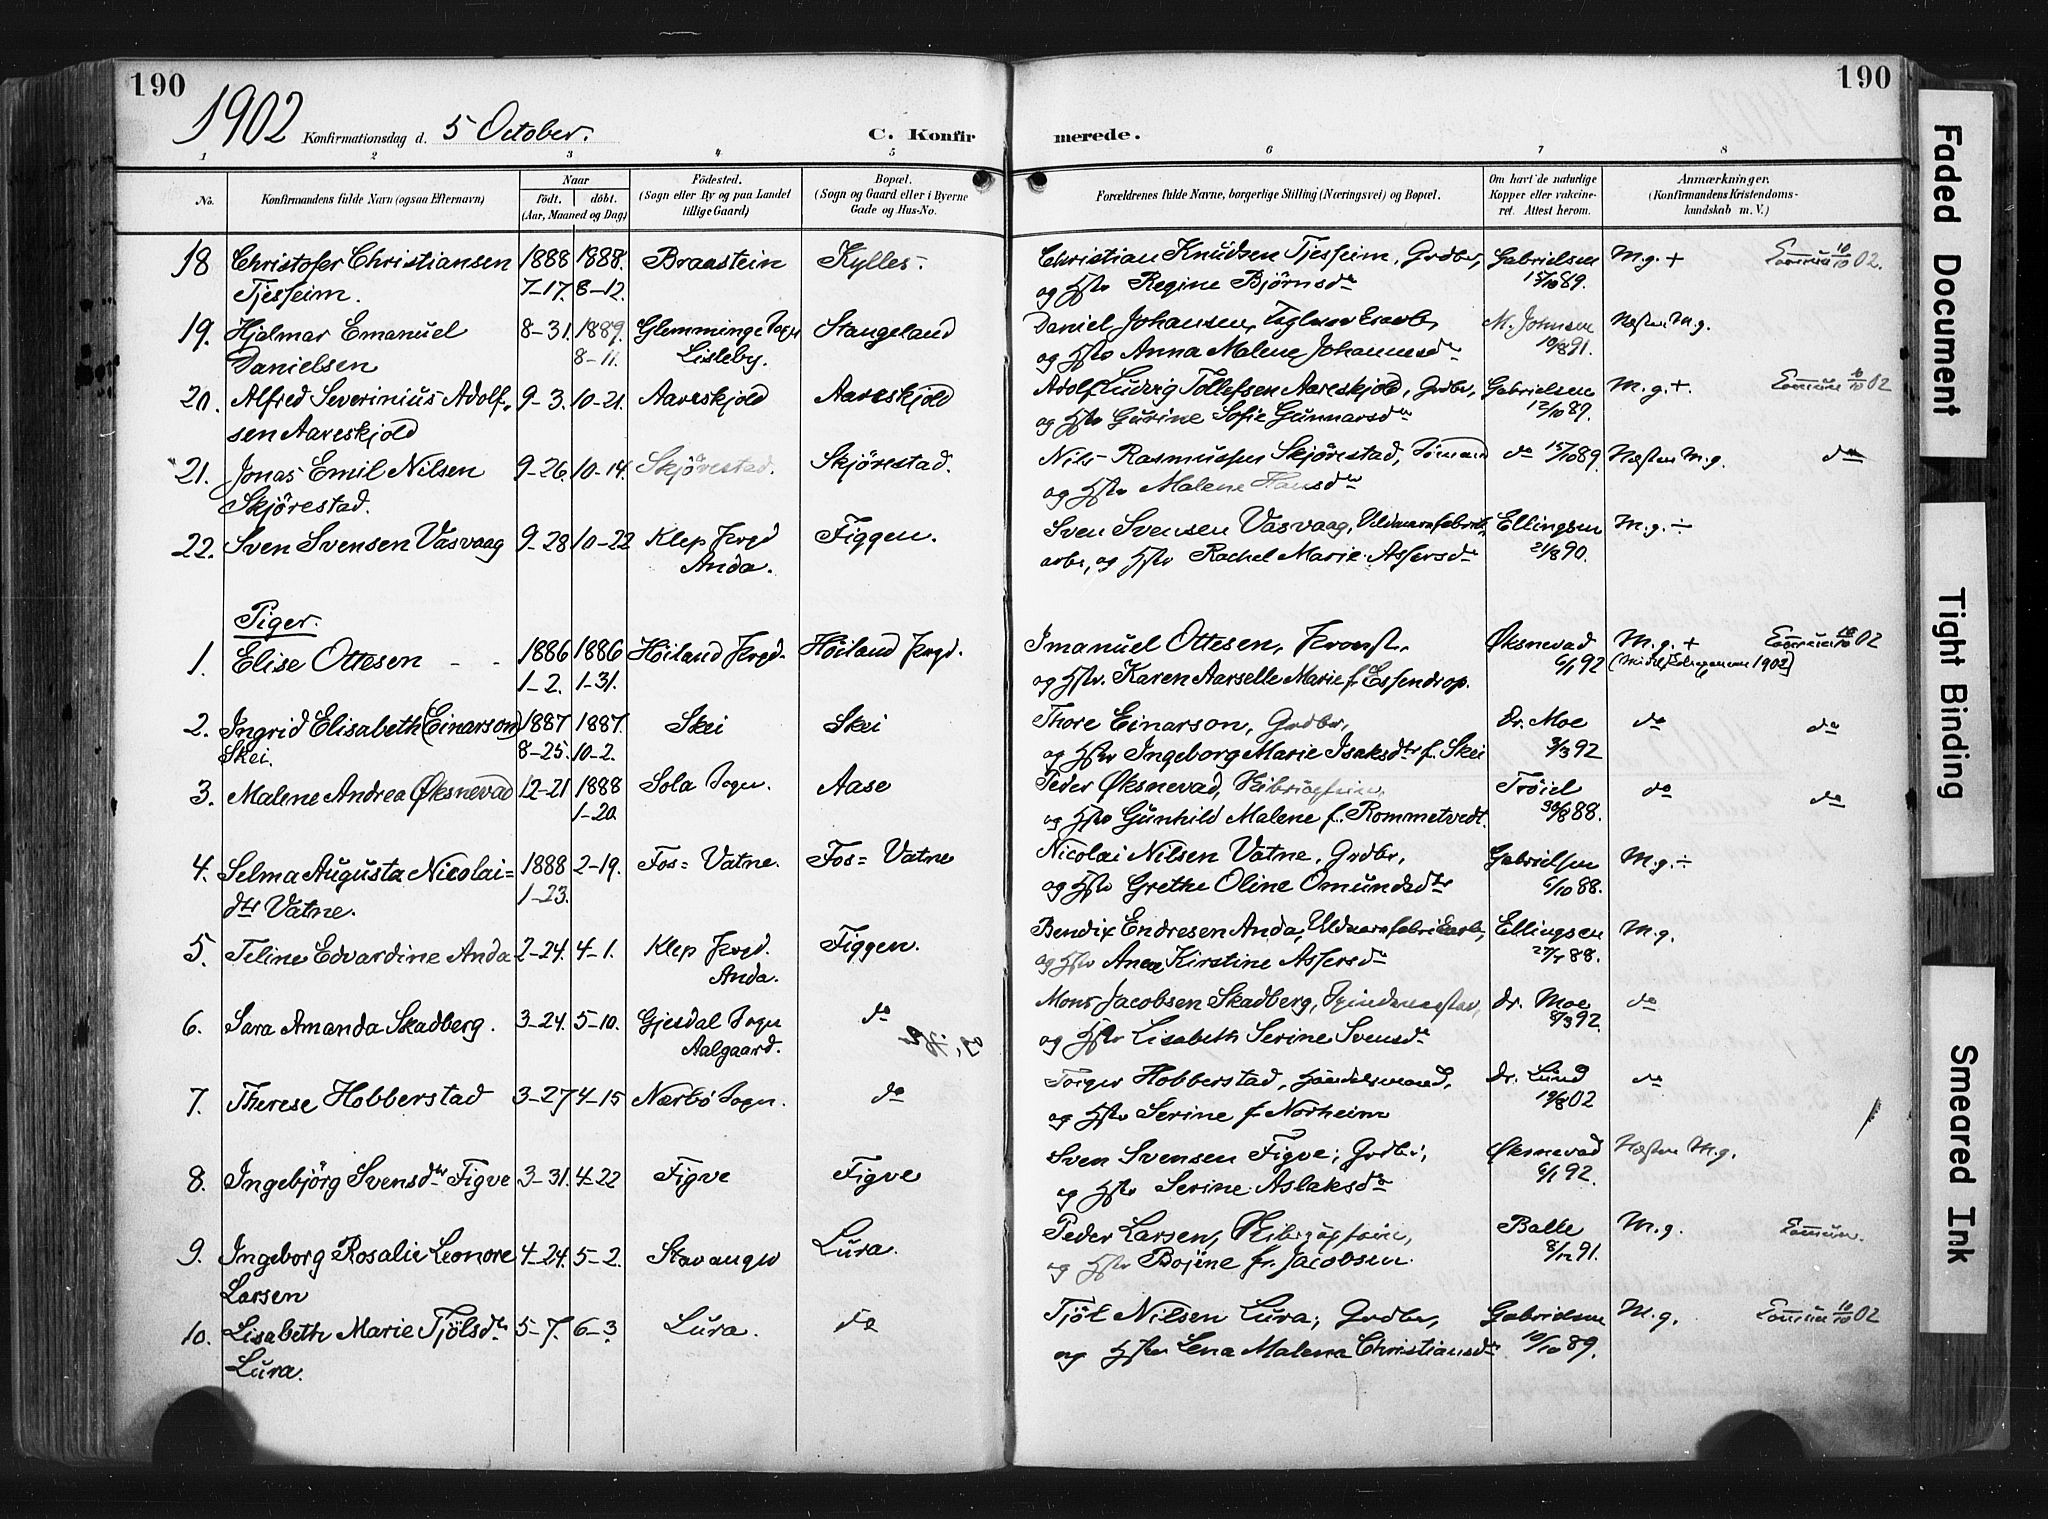 190
190
1902 Konfirmationsdag d. 5 October.
C. Konfir
merede.
1 2 3 4 5 6 7 8
No.
Konfirmandens fulde Navn (ogsaa Efternavn)
Naar
født. døbt.
(Aar, Maaned og Dag)
Fødested.
(Sogn eller By og paa Landet
tillige Gaard)
Bopæl.
(Sogn og Gaard eller i Byerne
Gade og Hus-No.
Forældrenes fulde Navne, borgerlige Stilling (Næringsvei) og Bopæl.
Om havt de naturlige
Kopper eller vakcine-
ret. Attest herom.
Anmærkninger.
(Konfirmandens Kristendoms-
kundskab m. V.)
18 Christofer Christiansen 1888 1888. Braastein Kylles. Christian Knudsen Tjesseim, Grdbr, Gabrielsen M.g. + 02.
Tjesseim. 7-17. 8-12. og Hstr Regine Bjørnsdr 15/10 89.
19. Hjalmar Emanuel 8-31. 1889. Glemminge Sogn Stangeland Daniel Johansen, M. Johnsen Næsten M.g.
Danielsen 8-11. Lisleby. og Hstr Anna Malene Johannesdr 19/8 91.
20. Alfred Severinius Adolf- 9-3. 10-21. Aareskjold Aareskjold Adolf Ludvig Tollefsen Aareskjold, Grdbr, Gabrielsen M.g. +. 02
sen Aareskjold og Hstr Gurine Sofie Gunnarsdr 12/10 89.
21. Jonas Emil Nilsen 9-26. 10-14. Skjørestad. Skjørestad. Nils Rasmussen Skjørestad, do 15/10 89. Næsten M.g. do
Skjørestad. og Hstr Malene Hansdr
22. Sven Svensen Vasvaag 9-28 10-22 Klep Prgd Figgen. Sven Svensen Vasvaag, Uldvarefabrik- Ellingsen M.g. ÷
Anda. arbr, og Hstr Rachel Marie Assersdr 21/8 90.
Piger.
1. Elise Ottesen - - 1886 1886 Høiland Prgd. Høiland Prgd. Imanuel Ottesen, Provst, Øksnevad M.g. + 02
1-2. 1-31. og Hstr. Karen Aarselle Marie f. Essendrop. 6/1 92
2. Ingrid Elisabeth (Einarson) 1887 1887. Skei Skei Thore Einarson, Grdbr, dr. Moe do do
Skei. 8-25. 10-2. og Hstr Ingeborg Marie Isaksdtr f. Skei 3/3 92
3. Malene Andrea Øksnevad 12-21 1888 Sola Sogn. Aase Peder Øksnevad, Trøiel do do
1-20. og Hstr Gunhild Malene f. Rommetvedt. 30/8 88.
4. Selma Augusta Nicolai= 1888 2-19. Fos= Vatne. Fos= Vatne Nicolai Nilsen Vatne, Grdbr, Gabrielsen M.g. ÷
dtr Vatne. 1-23. og Hstr Grethe Oline Omundsdtr 6/10 88.
5. Teline Edvardine Anda 2-24. 4-1. Klep Prgd. Figgen. Bendix Endresen Anda, Uldvarefabrikarb, Ellingsen M.g.
Anda. og Hstr Kirstine Assersdr 88.
6. Sara Amanda Skadberg. 3-24. 5-10. Gjesdal Sogn do Mons Jacobsen Skadberg, dr. Moe do
Aalgaard. og Hstr Lisabeth Serine Svensdr 8/3 92.
7. Therese Hobberstad 3-27 4-15 Nærbø Sogn. do Torger Hobberstad, Handelsmand, dr. Lund do
og Hstr Serine f. Norheim 19/8 02
8. Ingebjörg Svensdtr Figve 3-31. 4-22 Figve Figve Sven Svensen Figve, Grdbr, Øksnevad Næsten M.g.
og Hstr Serine Aslaksdr 6/1 92.
9. Ingeborg Rosalie Leonore 4-24. 5-2. Stavanger Lura. Peder Larsen, Balle M.g.
Larsen og Hstr Bojine f. Jacobsen. 8/12 91.
10. Lisabeth Marie Tjölsdtr 5-7. 6-3. Lura. do Tjöl Nilsen Lura, Grdbr, Gabrielsen M.g. 02
Lura. og Hstr Lena Malena Christiansdtr 10/10 89.
Faded Document
Tight Binding
Smeared Ink